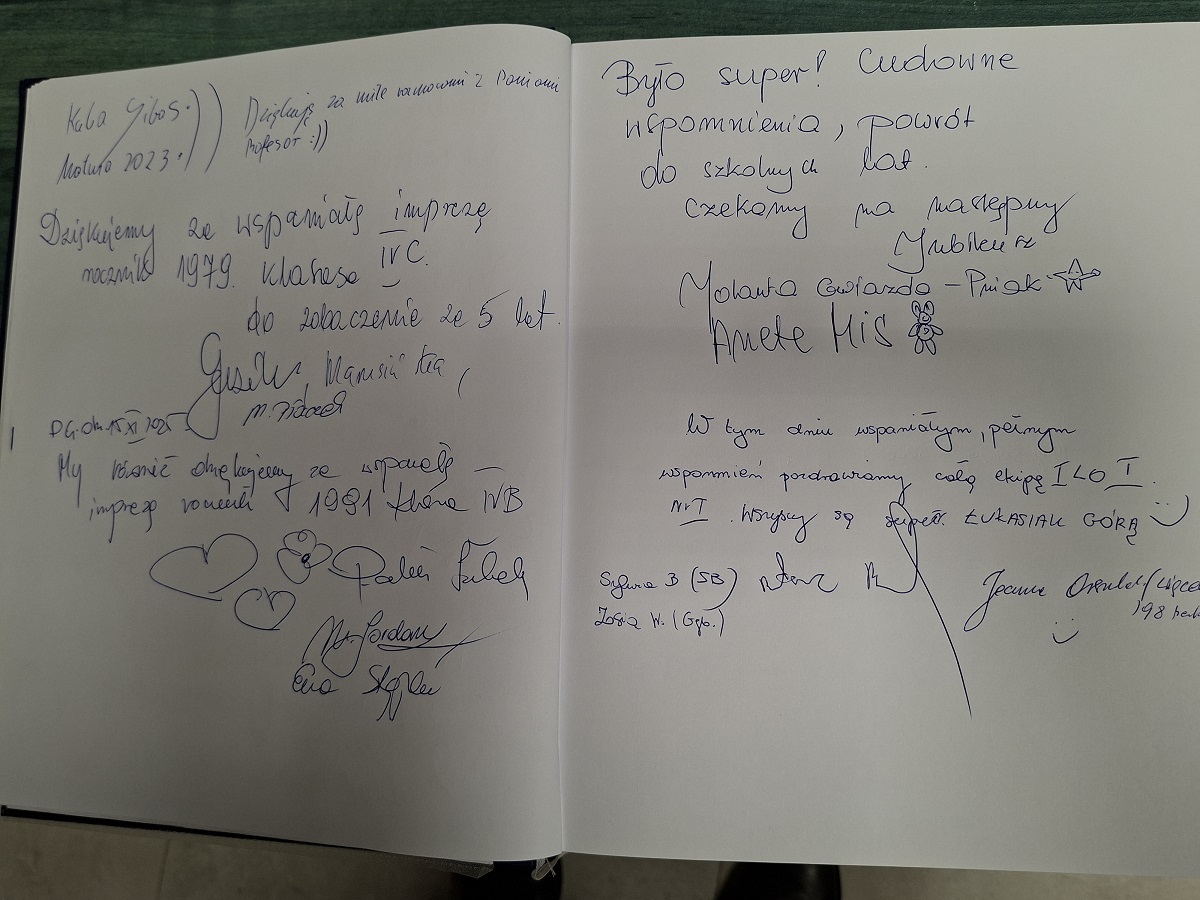 Kuba Gibas :))
Matura 2023 :))
Dziękuję za miłe rozmowy z Paniami
Profesor :))
Dziękujemy za wspaniałą imprezę
rocznik 1979. Klasa IV C.
do zobaczenia za 5 lat.
Marysia
D.G. dn. 15 XI 2025
My również dziękujemy za wspaniałą
imprezę rocznik 1991 klasa IV B
Ewa
Było super! Cudowne
wspomnienia, powrót
do szkolnych lat.
Czekamy na następny
Jubileusz
Jolanta Gwiazda - Pniak
Aneta Miś
W tym dniu wspaniałym, pełnym
wspomnień pozdrawiamy całą ekipę I LO I
Nr I. Wszyscy są super. ŁUKASIAK GÓRĄ
Sylwia B (SB)
Zosia W. (Gęb.)
Joanna